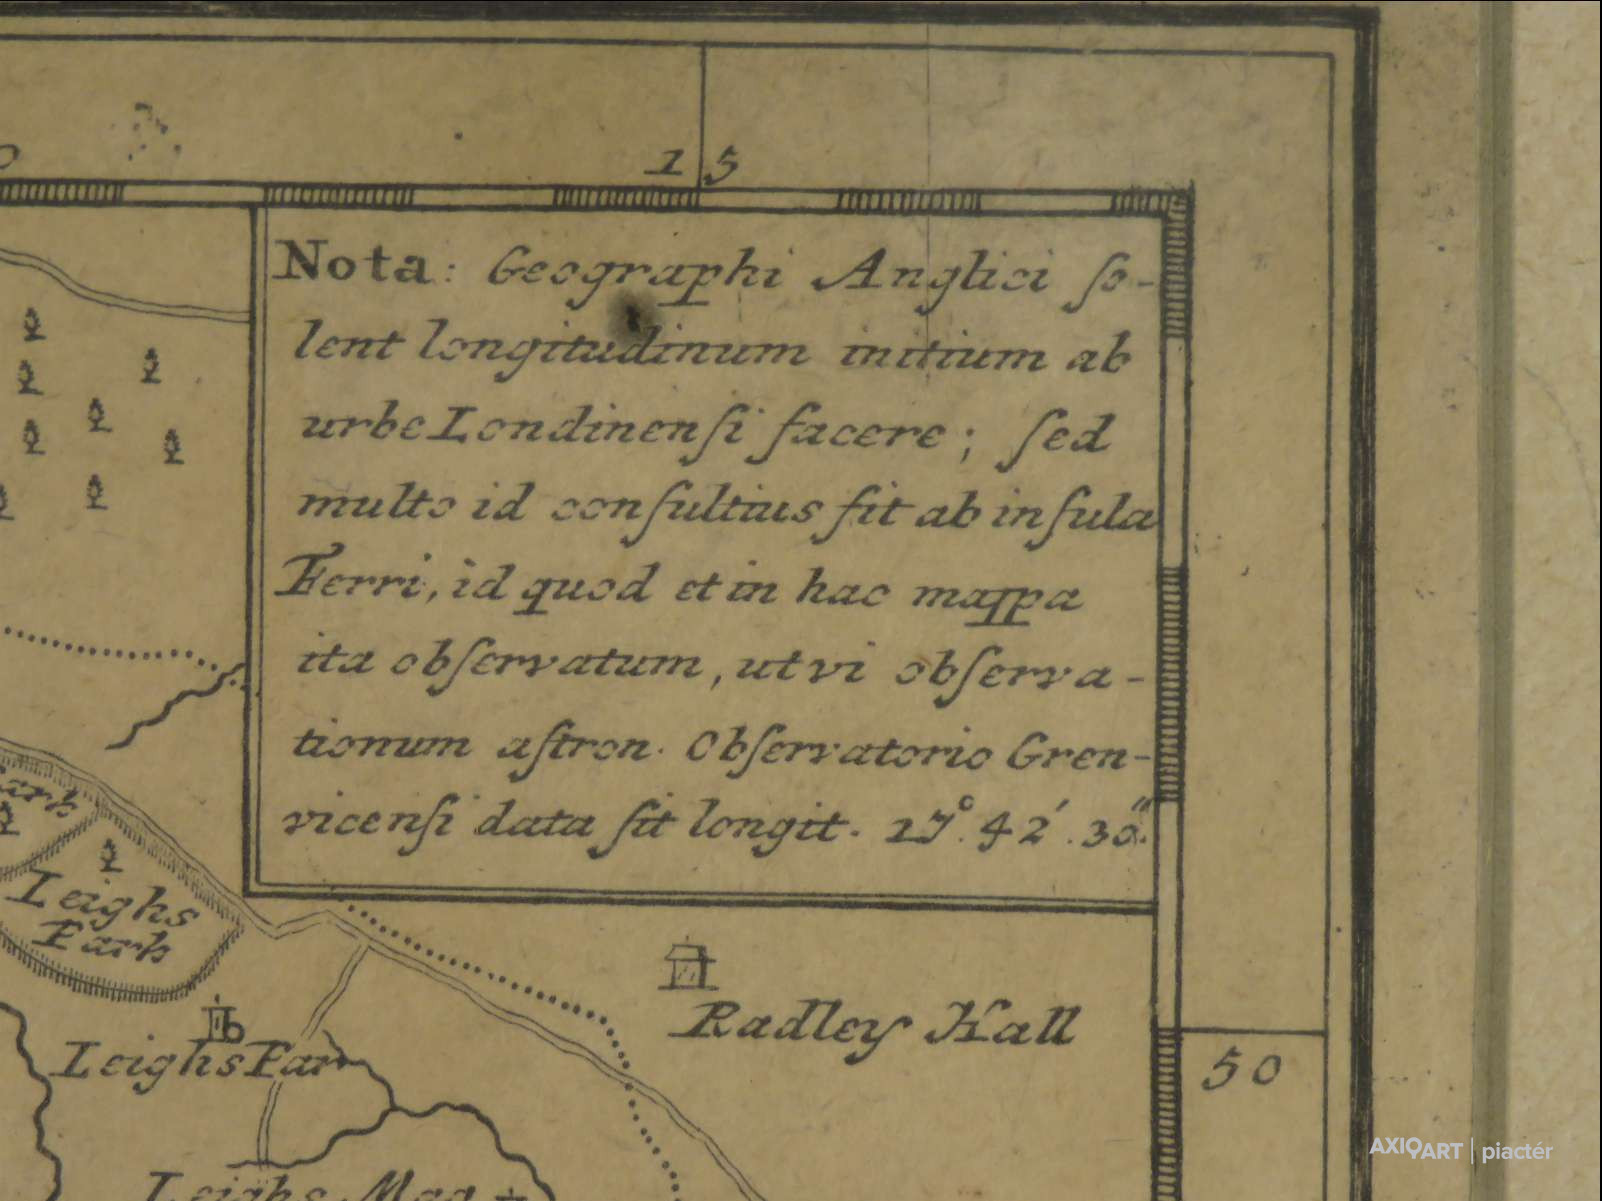 15
Nota: Geographi Anglici ſo-
lent longitudinum initium ab
urbe Londinenſi facere; ſed
multo id conſultius fit ab inſula
Ferri, id quod et in hac mappa
ita obſervatum, ut vi obſerva-
tionum aſtron. Obſervatorio Gren-
vicenſi data ſit longit. 17°. 42′. 30″.
Leighs
Park
Radley Hall
Leighs Par
50
Leighs Mag
AXIOART | piactér